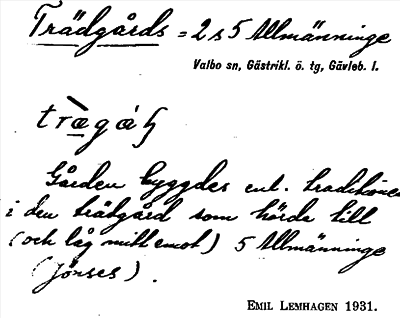 Trädgårds = 2 s 5 Allmänninge
Valbo sn, Gästrikl. ö. tg, Gävleb. l.
Gården byggdes enl. traditionen
i den trädgård som hörde till
(och låg mitt emot) 5 Allmänninge
(Jönses).
EMIL LEMHAGEN 1931.